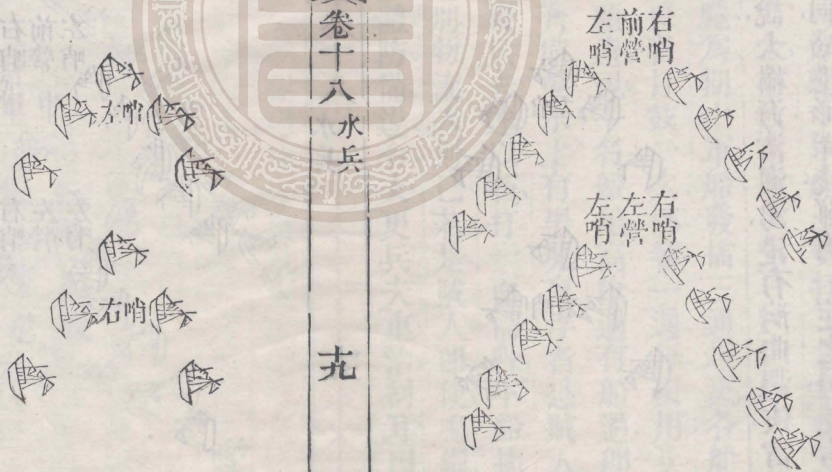 右哨
前營
左哨
右哨
左營
左哨
卷十八 水兵
十九
左哨
右哨